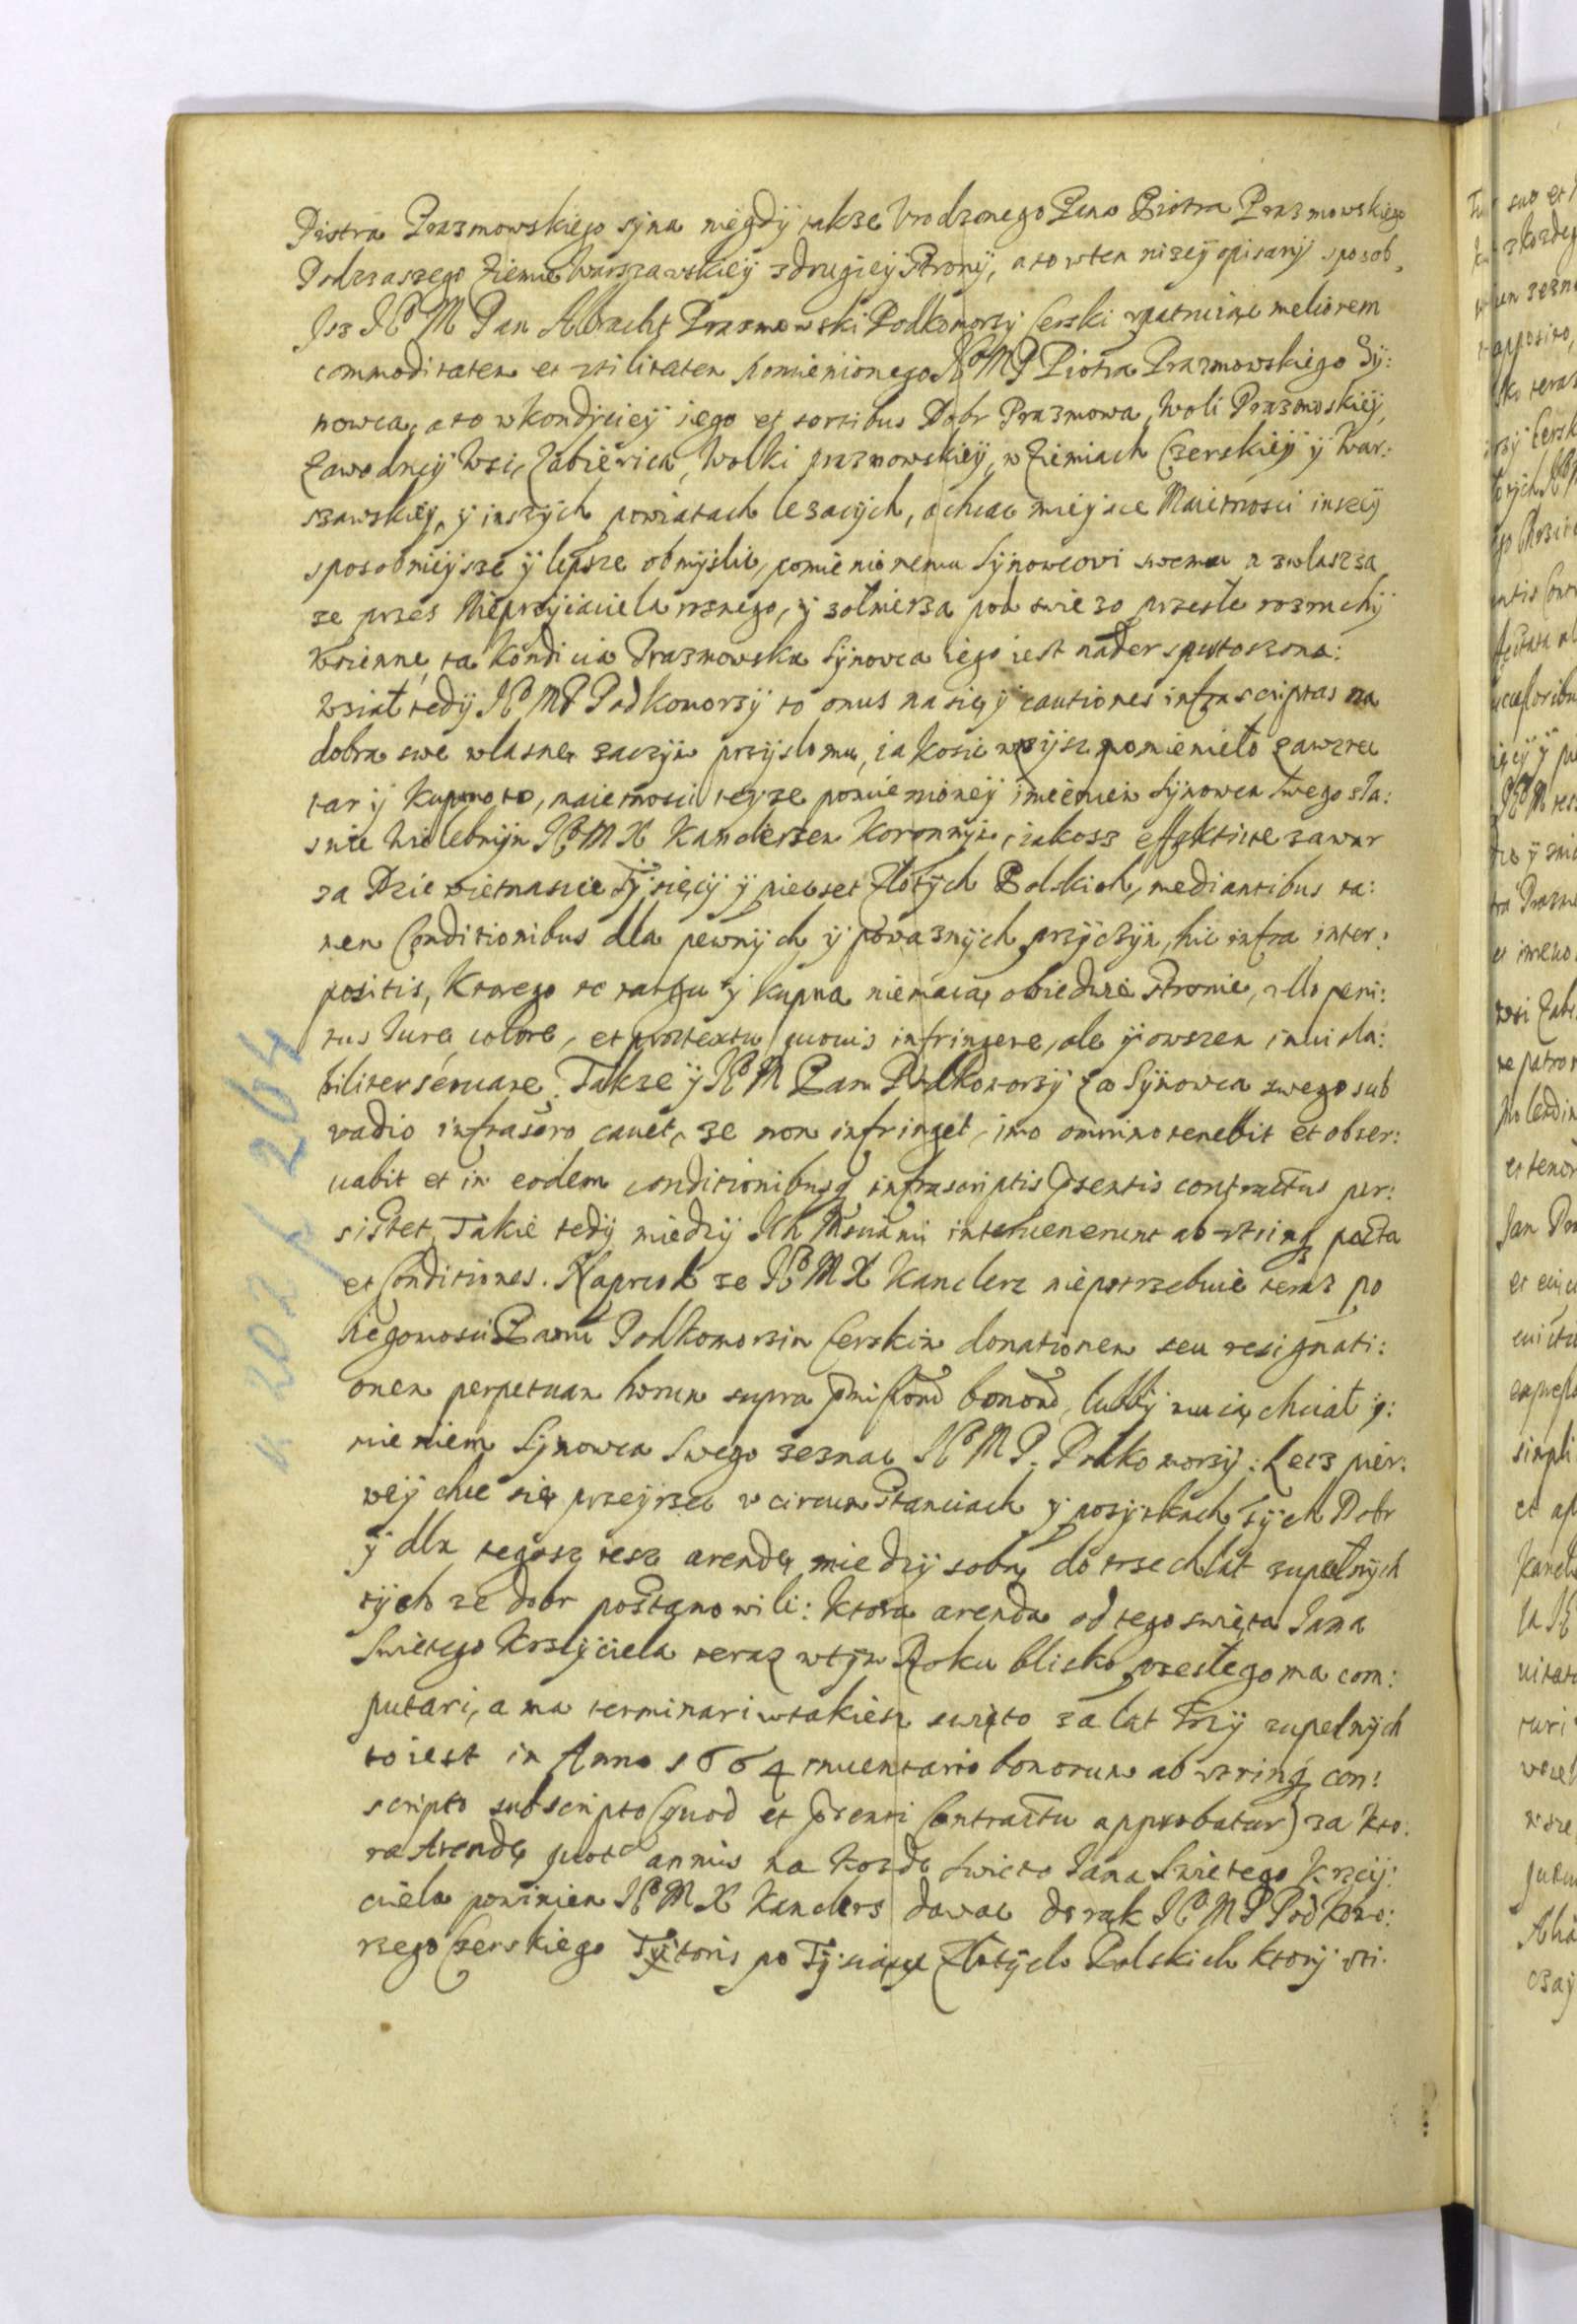 Piotra Prazmowskiego syna niegdÿ takze Vrodzonego Pana Piotra Prazmowskiego
Podczaszego Ziemie Warszawskieÿ z drugieÿ stronÿ, a to wten nizeÿ opisanÿ sposob,
Jsz JẽM Pan Albracht Prazmowski Podkomorzÿ Cerski vpatruiąc meliorem
commoditatem et vtilitatem pomienionego JẽMP Piotra Prazmowskiego Sÿ:
nowca, a to w kondÿcieÿ iego et sortibus Dobr Prazmowa, Woli Prazmoskieÿ,
Zawodneÿ Wsi, Zabierica, Wolki prazmowskieÿ, w Ziemiach Czerskieÿ ÿ War:
szawskieÿ, ÿ inszÿch powiatach lezacÿch, a chcac mieÿsce Maietnosci inszeÿ
sposobnieÿsze ÿ lepsze obmÿslic, pomienionemu Sÿnowcovi swemu a zwlaszcza
ze przes Nieprzÿiaciela roznego, ÿ zołnierza pod swiezo przeszłe rozruchÿ
woienne, ta kondicia Prazmowska Sÿnowca iego iest nader spustoszona:
wział tedÿ JẽMP Podkomorzÿ to onus na się ÿ cautiones infrascriptas na
dobra swe własne, zaczÿm przÿszło mu, iakosie wzÿsz pomieniło zawrzec
targ ÿ kupno to, maietnosci teÿze pomienioneÿ imieniem Sÿnowca swego z Ia:
snie Wielebnÿm JẽMX Kanclerzem Koronnÿm, iakosz effektiue zawar
za Dziewietnascie Tÿsięcÿ ÿ piecset Złotÿch Polskich, mediantibus ta:
men Conditionibus dla pewnÿch ÿ powaznÿch przÿczÿn, hic infra inter:
positis, Ktorego to targu ÿ kupna niemaią obiedwie stronie, vllo peni:
tus Iure, colore, et prætextu quouis infringere, ale ÿ owszem inuiola:
biliter seruare. Takze ÿ JẽM Pan Podkomorzÿ za Sÿnowca swego sub
vadio infrascro cauet, ze non infringet, imo omnino tenebit et obser:
uabit et in eodem conditionibusq infrascriptis p̃sentis contractus per:
sistet. Takie tedÿ miedzÿ Ich Msciami interuenerunt ab vtrinq pacta
et Conditiones. Naprzod ze JẽMX Kanclerz niepotrzebuie teraz po
Jegomosci Panu Podkomorzim Cerskim donationem seu resignati:
onem perpetuam horum supra p̃missorũ bonorũ, lubbÿ mu ią chciał ÿ:
mieniem Sÿnowca Swego zeznac JẽMP. Podkomorzÿ: Lecz pier:
weÿ chce się przeÿrzec w circumstanciach ÿ pozÿtkach tÿch Dobr
ÿ dla tegosz tesz arendę miedzÿ sobą do trzech lat zupełnÿch
tÿchze dobr postanowili: Ktora arenda od tego święta Jana
Swietego Krzcÿciela teraz wtÿm Roku blisko przeszłego ma com:
putari, a ma terminari w takiesz swięto za lat Trzÿ zupełnÿch
to iest in Anno 1664 inuentario bonorum ab vtrinq con:
scripto subscripto (quod et p̃senti Contractu approbatur) za kto:
ra Arendę quot annis na kozde swieto Jana Swietego Krzcÿ:
ciela powinien JẽMX Kanclerz dawac do rąk JẽMP Podkomo:
rzego Czerskiego po Tÿsiącu Złotÿch Polskich ktorÿ
k 202 / 204